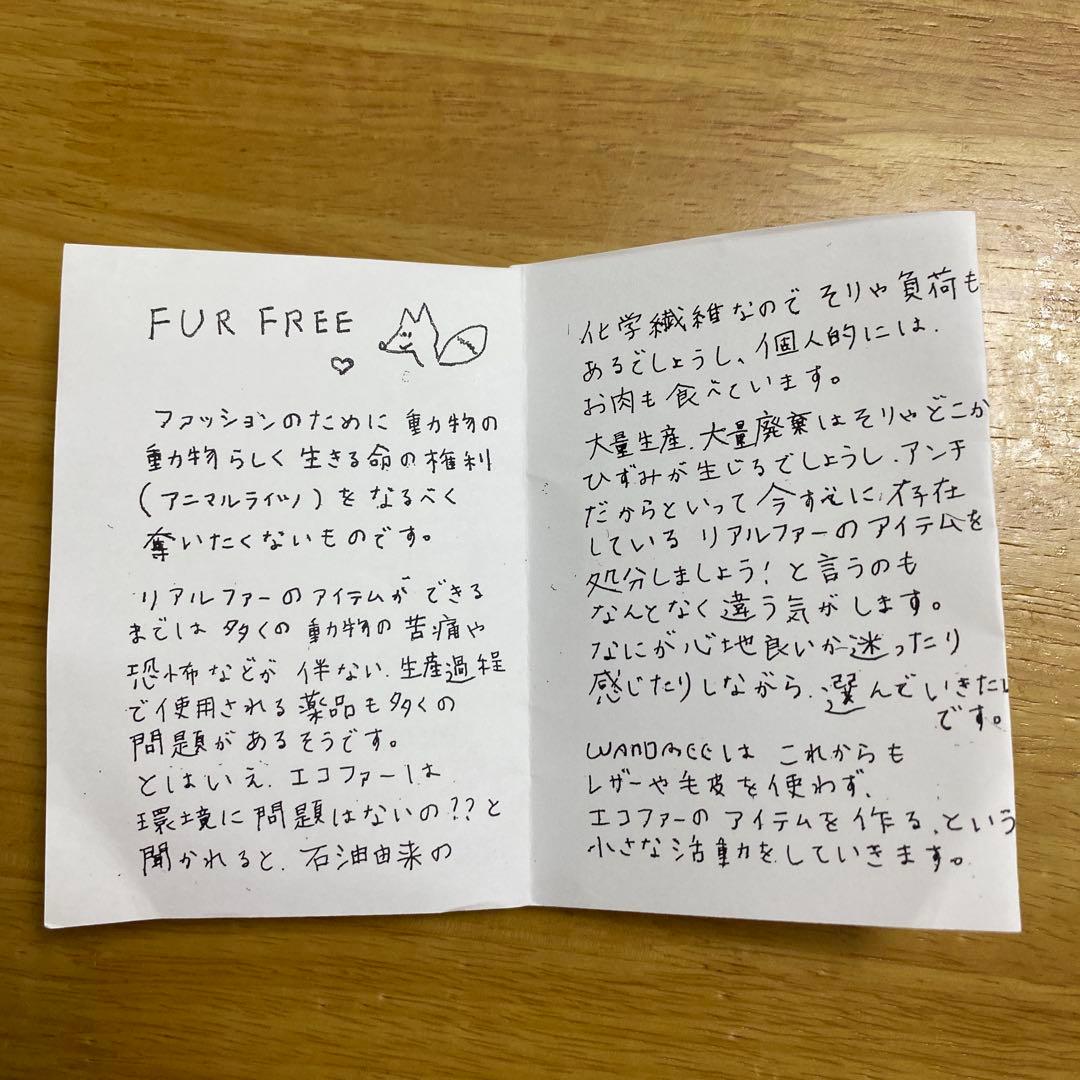 FUR FREE
ファッションのために 動物の
動物らしく 生きる命の権利
(アニマルライツ)を なるべく
奪いたくないものです。
リアルファーのアイテムが できる
までには 多くの 動物の 苦痛や
恐怖などが 伴ない、生産過程
で使用される薬品も多くの
問題があるそうです。
とはいえ、エコファーは
環境に問題はないの??と
聞かれると、石油由来の
化学繊維なので そりゃ負荷も
あるでしょうし、個人的には、
お肉も食べています。
大量生産、大量廃棄はそりゃどこか
ひずみが生じるでしょうし、アンチ
だからといって 今すでに存在
している リアルファーのアイテムを
処分しましょう! と言うのも
なんとなく違う気がします。
なにが心地良いか迷ったり
感じたりしながら、選んでいきたい
です。
は これからも
レザーや毛皮を使わず、
エコファーの アイテムを 作る、という
小さな活動をしていきます。